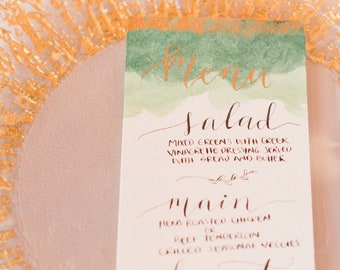 Menu
salad
MIXED GREENS WITH GREEK
VINAIGRETTE DRESSING SERVED
WITH BREAD AND BUTTER
main
HERB ROASTED CHICKEN
OR
BEEF TENDERLOIN
GRILLED SEASONAL VEGGIES